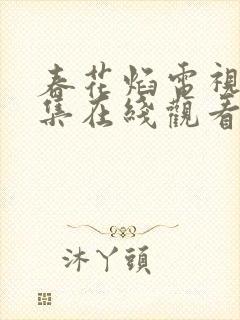 春花焰電視
集在綫觀看
沐丫頭